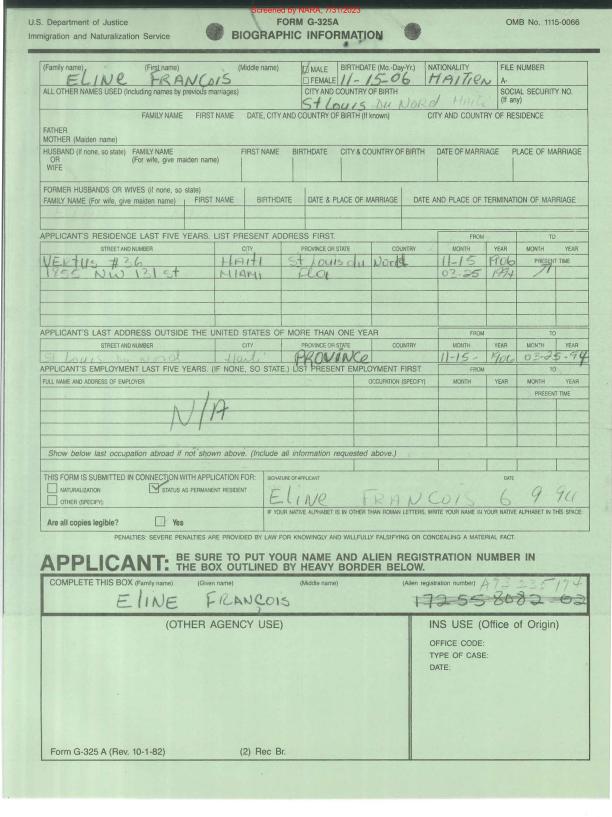 Screened by NARA, 7/31/2023
U.S. Department of Justice
Immigration and Naturalization Service
FORM G-325A
BIOGRAPHIC INFORMATION
OMB No. 1115-0066
(Family name) (First name) (Middle name) MALE FEMALE BIRTHDATE (Mo.-Day-Yr.) NATIONALITY FILE NUMBER
ELINE FRANÇOIS 11-15-06 HAITIEN A-
ALL OTHER NAMES USED (Including names by previous marriages) CITY AND COUNTRY OF BIRTH SOCIAL SECURITY NO. (If any)
St Louis Du Nord Haiti
FAMILY NAME FIRST NAME DATE, CITY AND COUNTRY OF BIRTH (If known) CITY AND COUNTRY OF RESIDENCE
FATHER
MOTHER (Maiden name)
HUSBAND (if none, so state) OR WIFE FAMILY NAME (For wife, give maiden name) FIRST NAME BIRTHDATE CITY & COUNTRY OF BIRTH DATE OF MARRIAGE PLACE OF MARRIAGE
FORMER HUSBANDS OR WIVES (if none, so state)
FAMILY NAME (For wife, give maiden name) FIRST NAME BIRTHDATE DATE & PLACE OF MARRIAGE DATE AND PLACE OF TERMINATION OF MARRIAGE
APPLICANT'S RESIDENCE LAST FIVE YEARS. LIST PRESENT ADDRESS FIRST. FROM TO
STREET AND NUMBER CITY PROVINCE OR STATE COUNTRY MONTH YEAR MONTH YEAR
VERTUS #36 HAITI St Louis du Nord 11-15 1906 PRESENT TIME
1855 NW 131 St MIAMI Fla 03-25 1994
APPLICANT'S LAST ADDRESS OUTSIDE THE UNITED STATES OF MORE THAN ONE YEAR FROM TO
STREET AND NUMBER CITY PROVINCE OR STATE COUNTRY MONTH YEAR MONTH YEAR
St Louis Du Nord Haiti PROVINCE 11-15- 1906 03-25-94
APPLICANT'S EMPLOYMENT LAST FIVE YEARS. (IF NONE, SO STATE.) LIST PRESENT EMPLOYMENT FIRST FROM TO
FULL NAME AND ADDRESS OF EMPLOYER OCCUPATION (SPECIFY) MONTH YEAR MONTH YEAR
PRESENT TIME
N/A
Show below last occupation abroad if not shown above. (Include all information requested above.)
THIS FORM IS SUBMITTED IN CONNECTION WITH APPLICATION FOR: SIGNATURE OF APPLICANT DATE
NATURALIZATION STATUS AS PERMANENT RESIDENT
OTHER (SPECIFY):
Eline FRANCOIS 6 9 94
IF YOUR NATIVE ALPHABET IS IN OTHER THAN ROMAN LETTERS, WRITE YOUR NAME IN YOUR NATIVE ALPHABET IN THIS SPACE:
Are all copies legible? Yes
PENALTIES: SEVERE PENALTIES ARE PROVIDED BY LAW FOR KNOWINGLY AND WILLFULLY FALSIFYING OR CONCEALING A MATERIAL FACT.
APPLICANT: BE SURE TO PUT YOUR NAME AND ALIEN REGISTRATION NUMBER IN THE BOX OUTLINED BY HEAVY BORDER BELOW.
COMPLETE THIS BOX (Family name) (Given name) (Middle name) (Alien registration number) A73 235 194
ELINE FRANÇOIS 172 55 8082 02
(OTHER AGENCY USE)
INS USE (Office of Origin)
OFFICE CODE:
TYPE OF CASE:
DATE:
Form G-325 A (Rev. 10-1-82) (2) Rec Br.